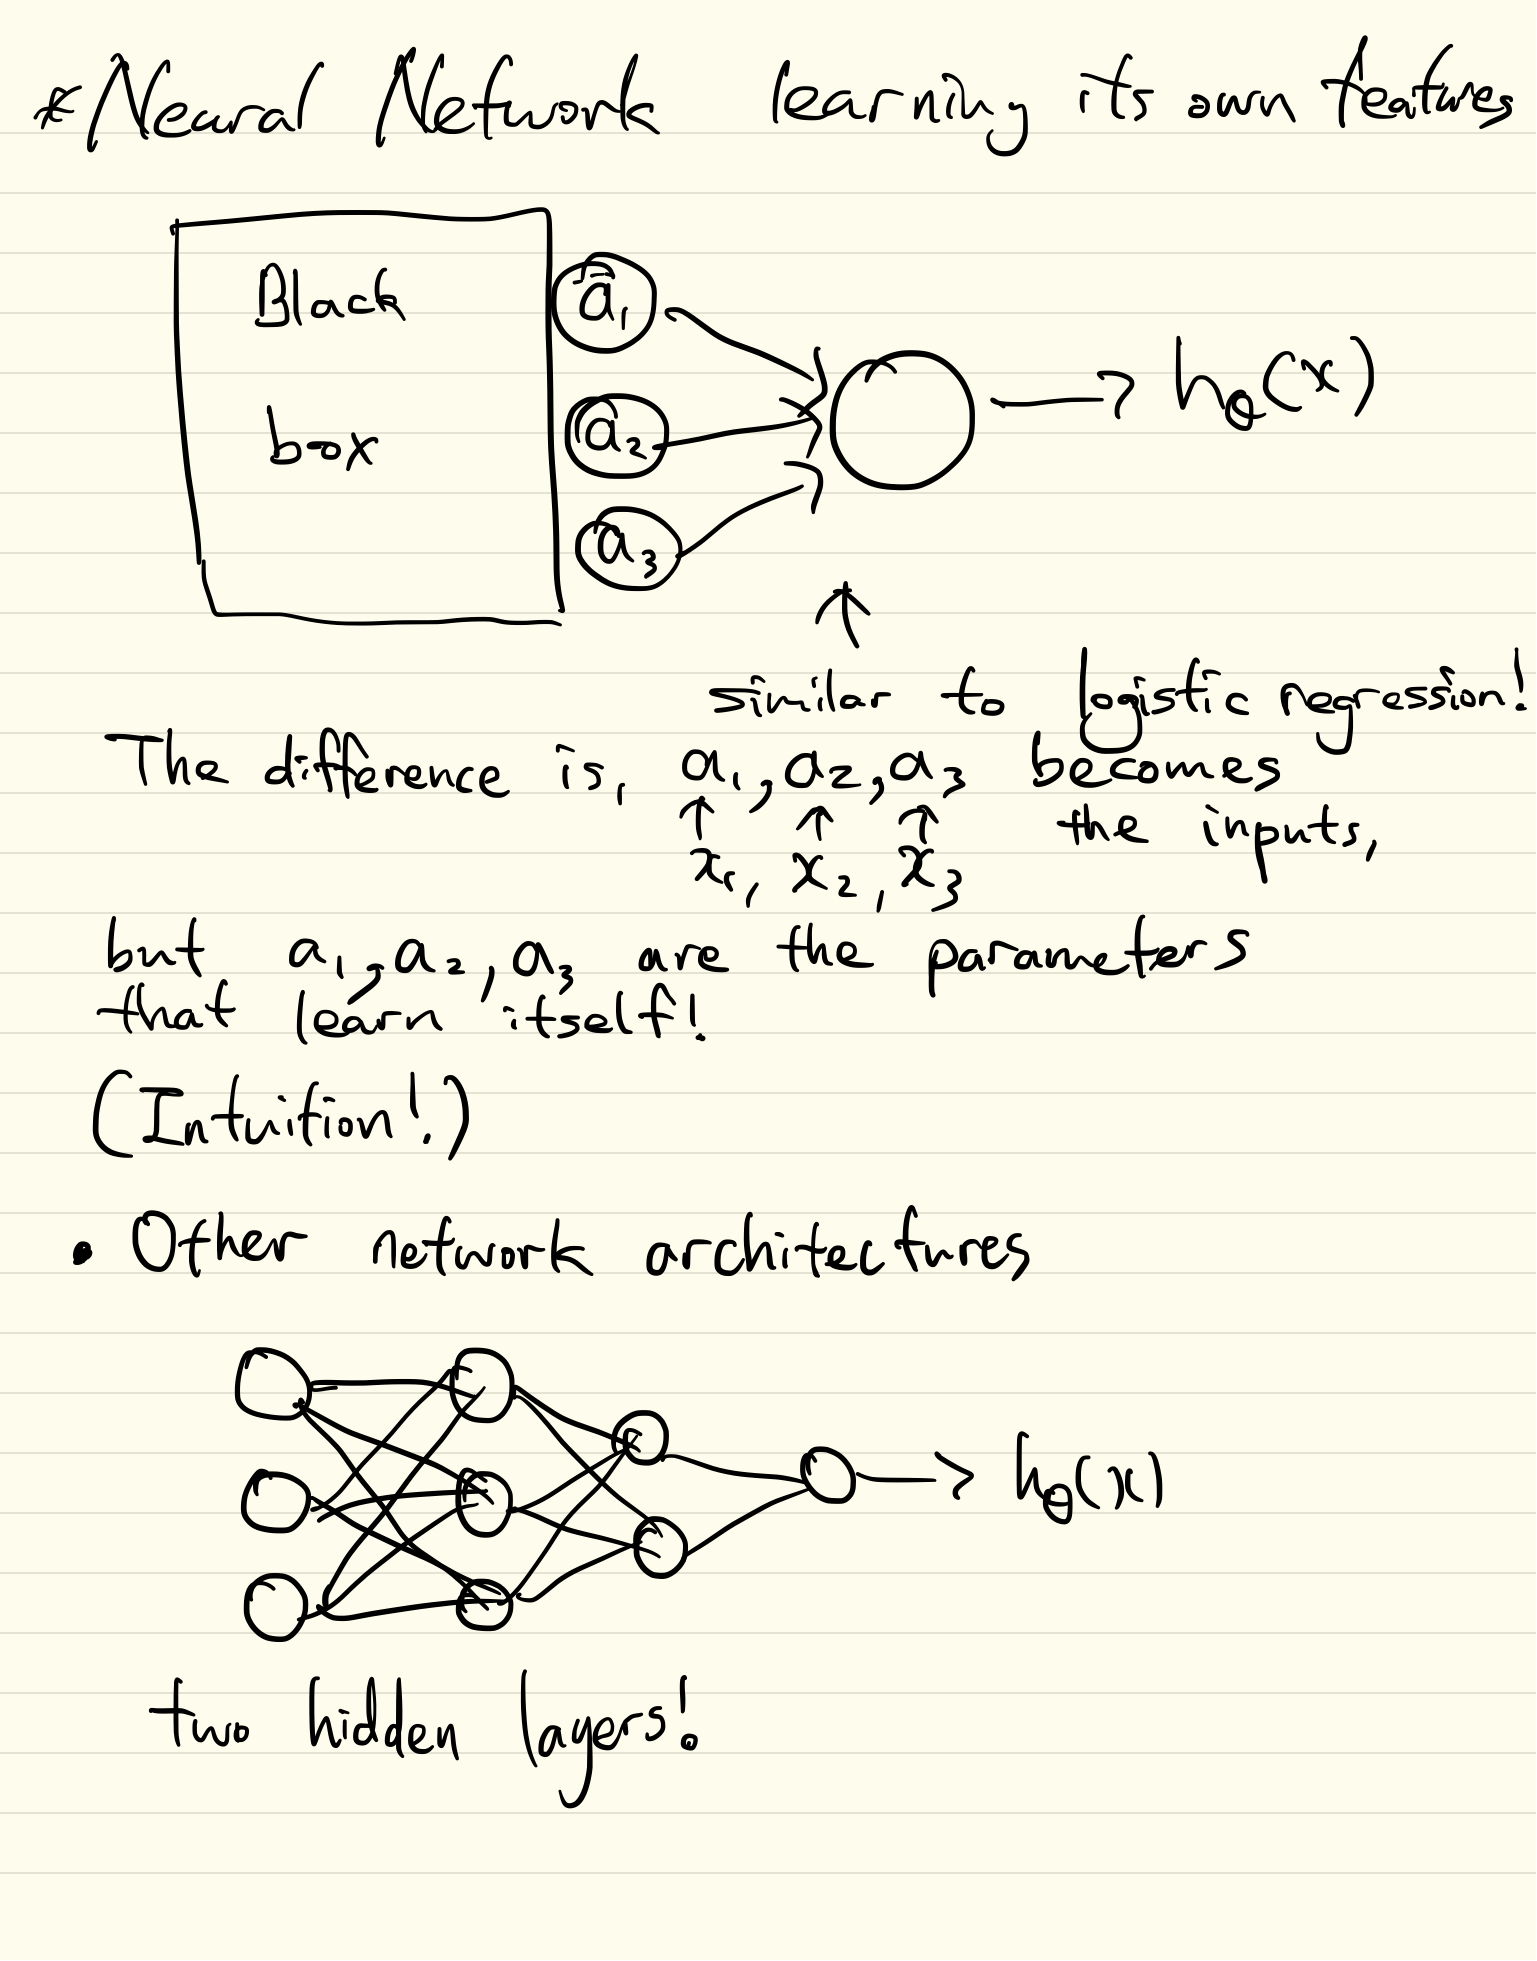 * Neural Network learning its own features
Black
box
a₁
a₂
a₃
h_θ(x)
↑
similar to logistic regression!
The difference is, a₁, a₂, a₃ becomes
↑ ↑ ↑ the inputs,
x₁, x₂, x₃
but a₁, a₂, a₃ are the parameters
that learn itself!
(Intuition!)
• Other network architectures
h_θ(x)
two hidden layers!